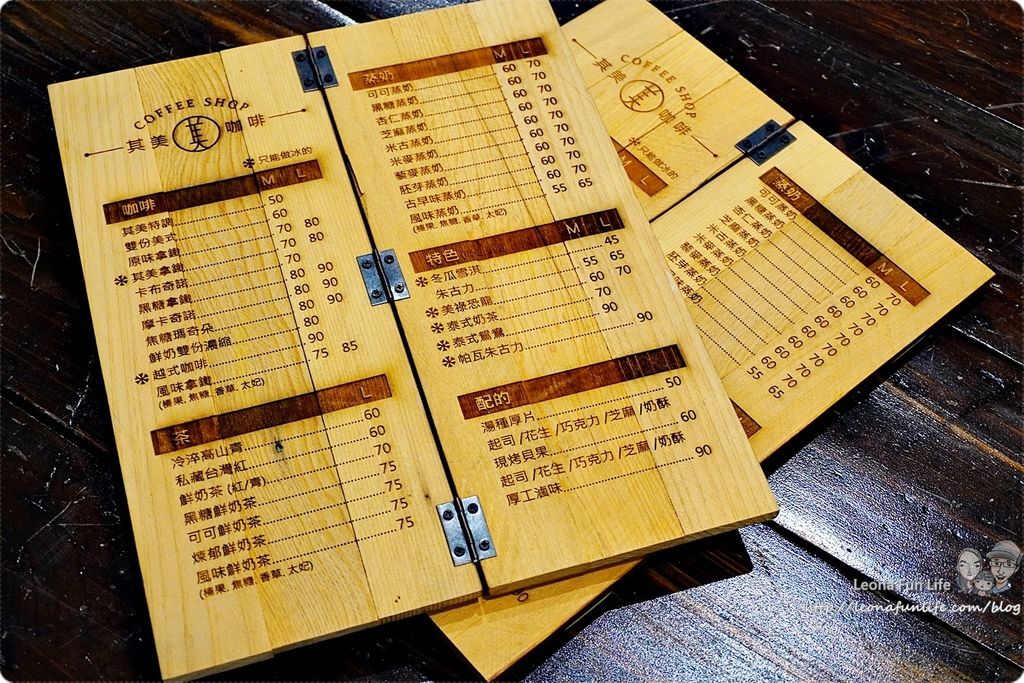 COFFEE SHOP
其美 咖啡
✻只能做冰的
咖啡 M L
其美特調 50
雙份美式 60
原味拿鐵 70 80
✻其美拿鐵 70 80
卡布奇諾 70
黑糖拿鐵 80 90
摩卡奇諾 80 90
焦糖瑪奇朵 80 90
鮮奶雙份濃縮 80
✻越式咖啡 90
風味拿鐵 75 85
(榛果, 焦糖, 香草, 太妃)
茶 L
冷淬高山青 60
私藏台灣紅 60
鮮奶茶 (紅/青) 70
黑糖鮮奶茶 75
可可鮮奶茶 75
煉郁鮮奶茶 75
風味鮮奶茶 75
(榛果, 焦糖, 香草, 太妃)
蒸奶 M L
可可蒸奶 60 70
黑糖蒸奶 60 70
杏仁蒸奶 60 70
芝麻蒸奶 60 70
米古蒸奶 60 70
米麥蒸奶 60 70
藜麥蒸奶 60 70
胚芽蒸奶 60 70
古早味蒸奶 60 70
風味蒸奶 55 65
(榛果, 焦糖, 香草, 太妃)
特色 M L
✻冬瓜雪淇 45
朱古力 55 65
✻美祿恐龍 60 70
✻泰式奶茶 70
✻泰式鴛鴦 90
✻帕瓦朱古力 90
配的
湯種厚片 50
起司/花生/巧克力/芝麻/奶酥
現烤貝果 60
起司/花生/巧克力/芝麻/奶酥
厚工滷味 90
COFFEE SHOP
其美 咖啡
✻只能做冰的
M L
蒸奶 M L
可可蒸奶 60 70
黑糖蒸奶 60 70
杏仁蒸奶 60 70
芝麻蒸奶 60 70
米古蒸奶 60 70
米麥蒸奶 60 70
藜麥蒸奶 60 70
胚芽蒸奶 60 70
味蒸奶 60 70
55 65
Leona Fun Life
http://leonafunlife.com/blog